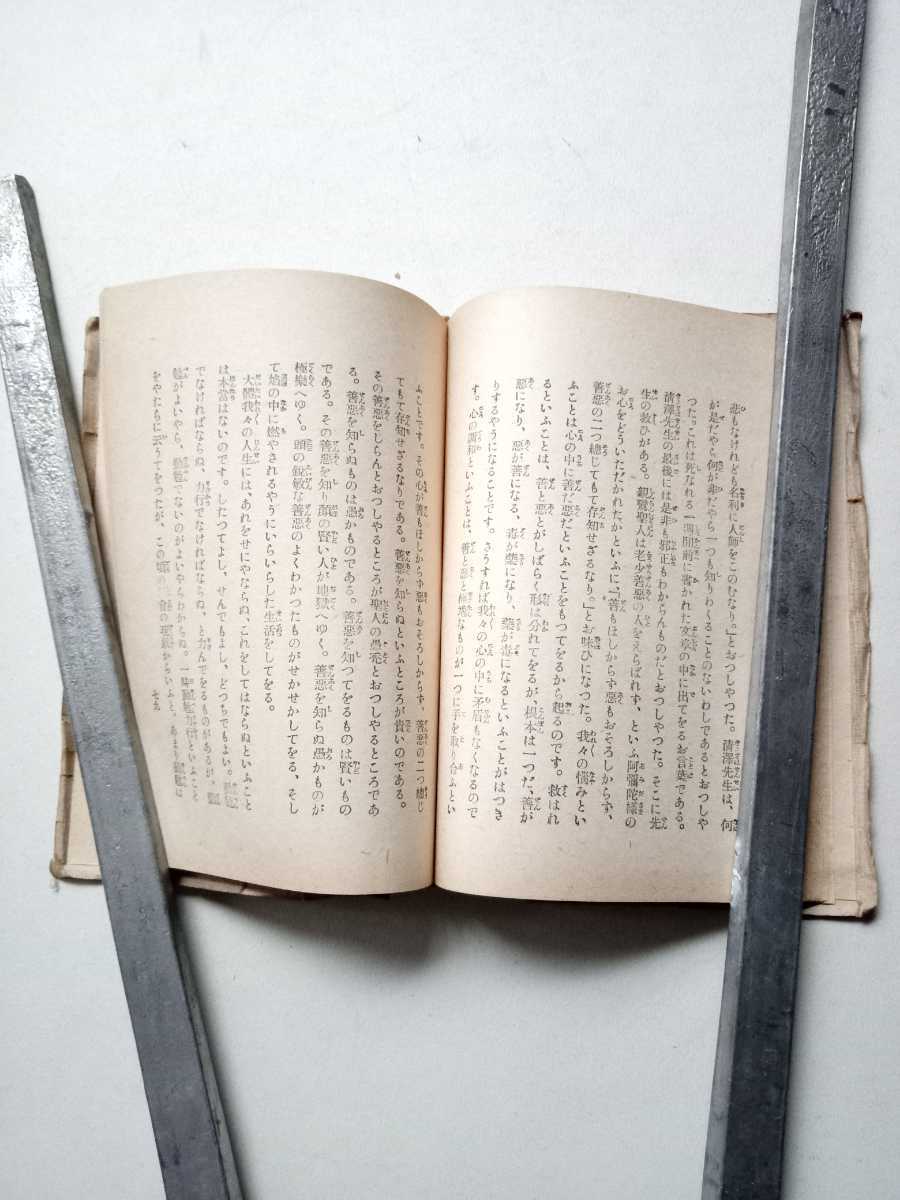 悲もなけれども名利に人師をこのむなり。』とおつしやつた。清澤先生は、何
が是だやら何が非だやら一つも知りわくることのないわしであるとおつしや
つた。これは死なれる一週間前に書かれた文章の中に出てをるお言葉である。
清澤先生の最後には是非も邪正もわからんものだとおつしやつた。そこに先
生の救ひがある。親鸞聖人は老少善惡の人をえらばれず、といふ阿彌陀樣の
お心をどういたゞかれたかといふに、『善もほしからず惡もおそろしからず、
善惡の二つ總じてもて存知せざるなり。』とお味ひになつた。我々の惱みとい
ふことは心の中に善だ惡だといふことをもつてをるから起るのです。救はれ
るといふことは、善と惡とがしばらく形は分れてをるが、根本は一つだ、善が
惡になり、惡が善になる、毒が藥になり、藥が毒になるといふことがはつき
りするやうになることです。さうすれば我々の心の中に矛盾もなくなるので
す。心の調和といふことは、善と惡と極端なものが一つに手を取り合ふとい
ふことです。その心が善もほしからず惡もおそろしからず、善惡の二つ總じ
てもて存知せざるなりである。善惡を知らぬといふところが貴いのである。
その善惡をしらんとおつしやるところが聖人の愚禿とおつしやるところであ
る。善惡を知らぬものは愚かものである。善惡を知つてをるものは賢いもの
である。その善惡を知り顔の賢い人が地獄へゆく。善惡を知らぬ愚かものが
極樂へゆく。頭の鋭敏な善惡のよくわかつたものがせかせかしてをる、そし
て焰の中に燃やされるやうにいらいらした生活をしてをる。
大體我々の人生には、あれをせにやならぬ、これをしてはならぬといふこと
は本當はないのです。したつてよし、せんでもよし、どつちでもよい。
でなければならぬ、力行でなければならぬ、と力んでをるものがあるが、
がよいやら、でないのがよいやらわからぬ。一
をやたらにぞうてをつたが、この頃の